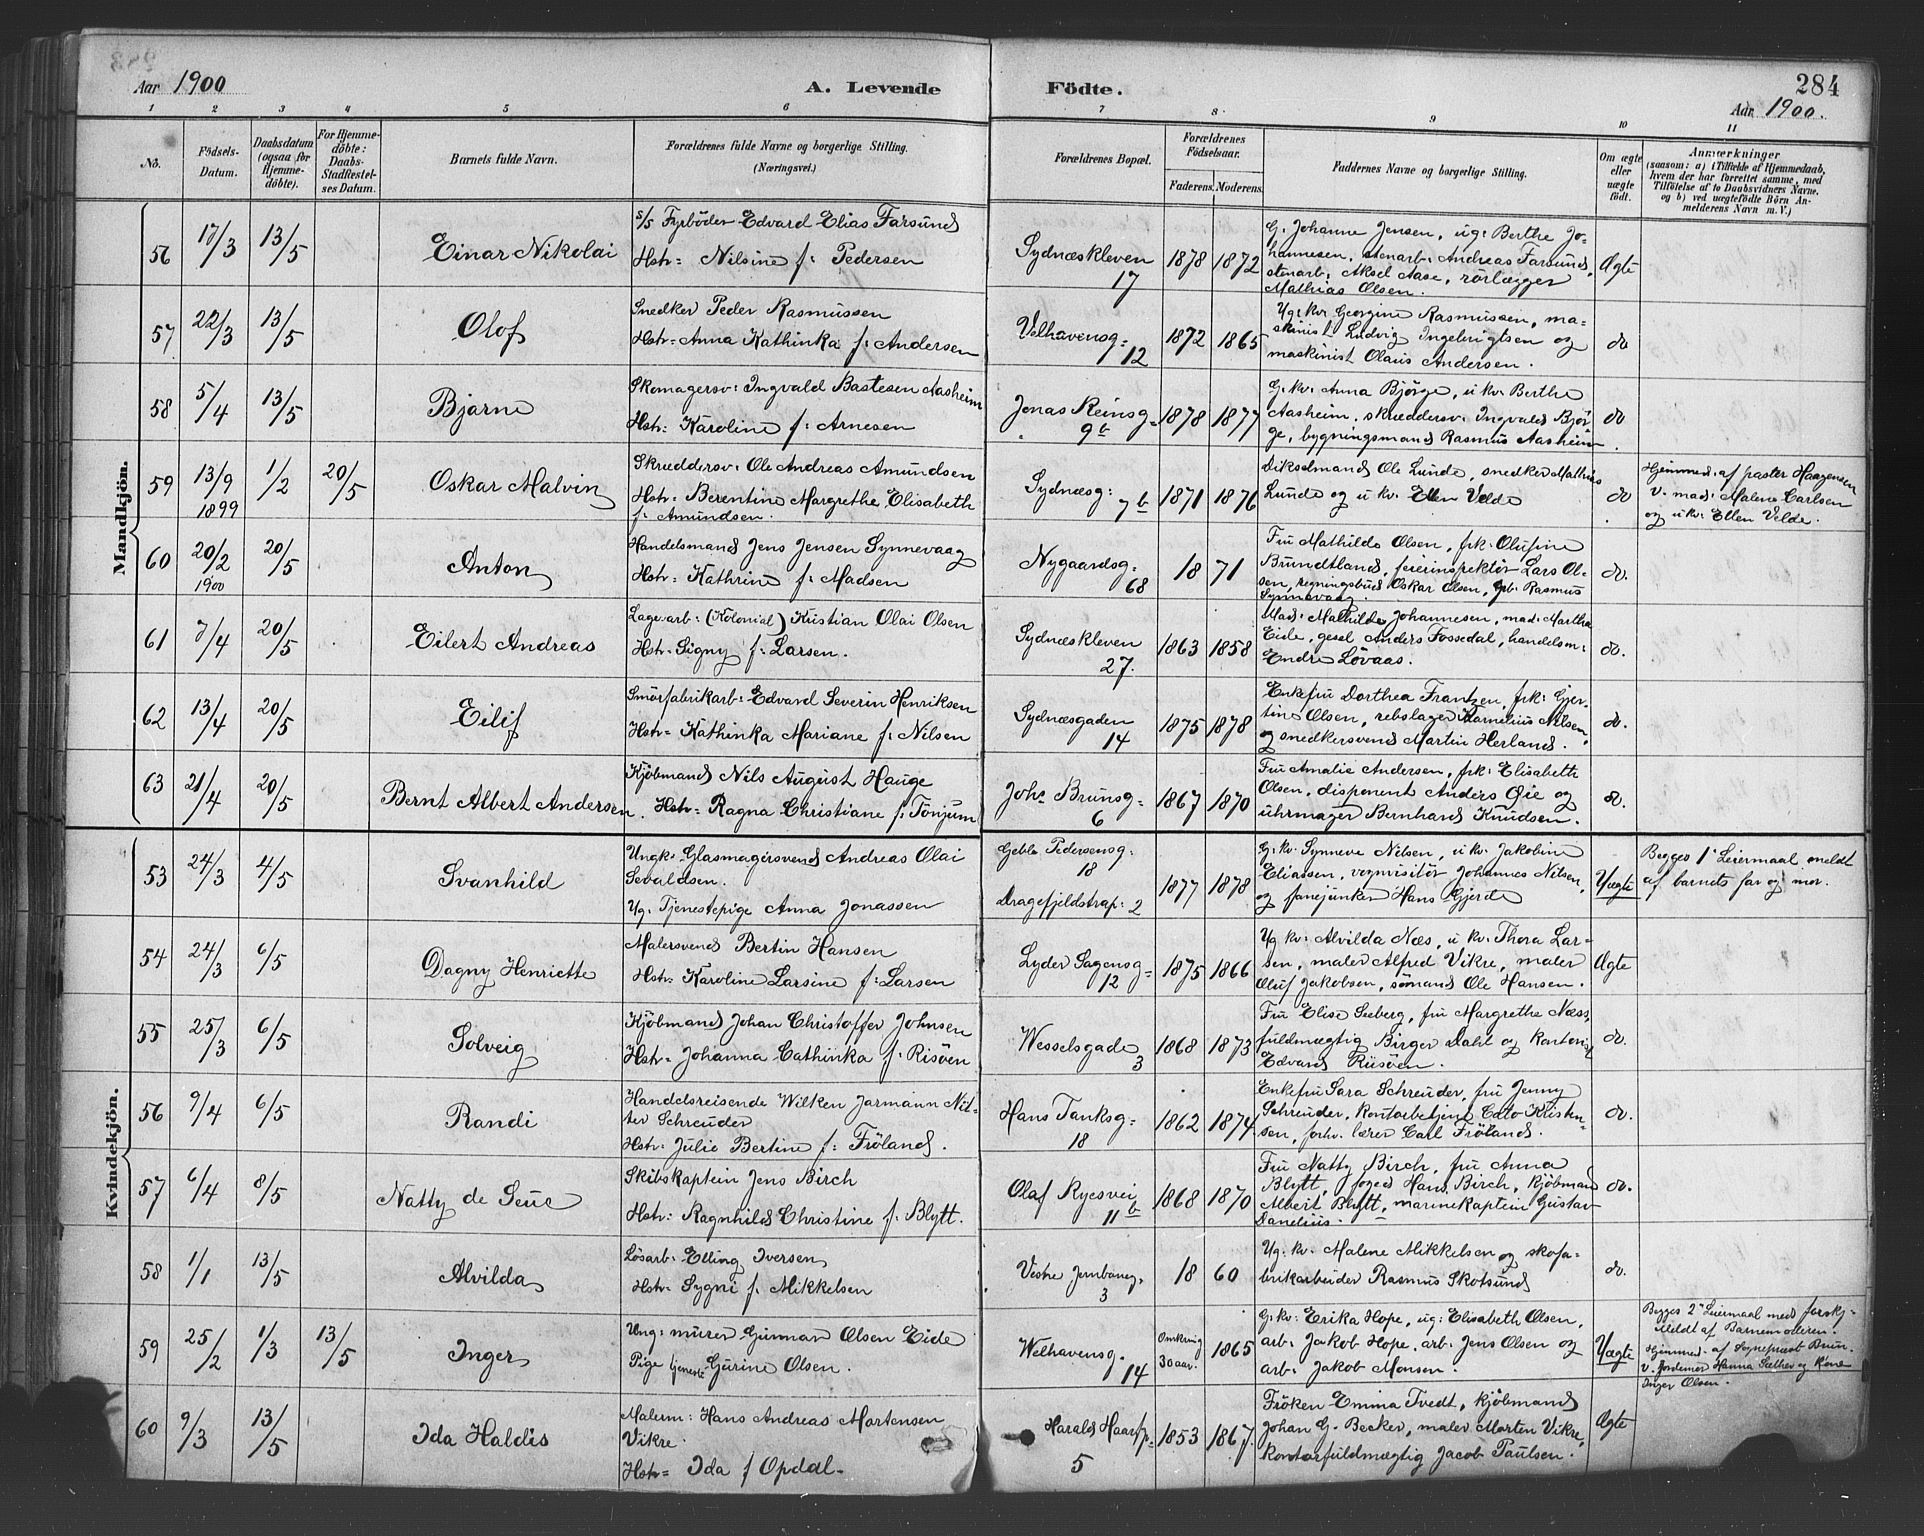 Aar 1900 A. Levende Födte. 284
Aar 1900.
1 2 3 4 5 6 7 8 9 10 11
No. Födsels-Datum. Daabsdatum (ogsaa for Hjemmedöbte). For Hjemmedöbte: Daabs-Stadfæstelses Datum. Barnets fulde Navn. Forældrenes fulde Navne og borgerlige Stilling. (Næringsvei.) Forældrenes Bopæl. Forældrenes Födselsaar. Faderens. Moderens. Faddernes Navne og borgerlige Stilling. Om ægte eller uægte födt. Anmærkninger (saasom: a) i Tilfælde af Hjemmedaab, hvem der har forrettet samme, med Tilföielse af to Daabsvidners Navne, og b) ved uægtefödte Börn Anmelderens Navn m. V.)
Mandkjön.
56 17/3 13/5 Einar Nikolai
s/s Fyrböder Edvard Elias Farsund
Hstr: Nilsine f: Pedersen
Sydnæskleven 17 1878 1872
G. Johanne Jensen, ug: Berthe Jo-
hannesen, stenarb: Andreas Farsund,
stenarb: Aksel Aase, rörlægger
Mathias Olsen.
Ægte
57 22/3 13/5 Olof
Snedker Peder Rasmussen
Hstr: Anna Kathinka f: Andersen
Velhavensg: 12 1872 1865
Ug: kv Georgine Rasmussen, ma-
skinist Ludvig Ingebrigtsen og
maskinist Olaus Andersen.
do
58 5/4 13/5 Bjarne
Skomagersv: Ingvald Bastesen Aasheim
Hstr: Karoline f: Arnesen
Jonas Reinsg: 9b 1878 1877
G: kv: Anna Björge, u kv: Berthe
Aasheim, skræddersv: Ingvald Björ-
ge, bygningsmand Rasmus Aasheim
do
59 13/9 1899 1/2 20/5 Oskar Malvin
Skræddersv: Ole Andreas Amundsen
Hstr: Berentine Margrethe Elisabeth
f: Amundsen.
Sydnæsg: 7b 1871 1876
Dikselmand Ole Lunde, snedker Mathias
Lunde og u kv: Ellen Velde
do
Hjemmed: af pastor Haagensen
v. mad: Malene Carlsen
og u kv: Ellen Velde.
60 20/2 1900 20/5 Anton
Handelsmand Jens Jensen Synnevaag
Hstr: Kathrine f: Madsen
Nygaardsg: 68 18 71
Fru Mathilde Olsen, frk: Olufine
Brundtland, feierinspektör Lars Ol-
sen, regningsbud Oskar Olsen, Rasmus
Synnevaag.
do.
61 7/4 20/5 Eilert Andreas
Lagerarb: (Kolonial) Kristian Olai Olsen
Hstr: Signy f: Larsen.
Sydnæskleven 27. 1863 1858
Mad: Mathilde Johannesen, mad: Martha
Eide, gesel Anders Fossedal, handelsm:
Endre Lövaas.
do.
62 13/4 20/5 Eilif
Smörfabrikarb: Edvard Severin Henriksen
Hstr: Kathinka Mariane f: Nilsen
Sydnæsgaden 14 1875 1878
Enkefru Dorthea Frantzen, frk: Gjer-
tine Olsen, rebslager Kornelius Nilsen,
og snedkersvend Martin Herland.
do.
63 21/4 20/5 Bernt Albert Andersen.
Kjöbmand Nils August Hauge
Hstr: Ragna Christiane f: Tönjum
Johs Brunsg: 6 1867 1870
Fru Amalie Andersen, frk: Elisabeth
Olsen, disponent Anders Öie og
uhrmager Bernhard Knudsen.
do.
Kvindekjön.
53 24/3 4/5 Svanhild
Ungk: Glasmagersvend Andreas Olai
Sevaldsen.
Ug: Tjenestepige Anna Jonassen
Geble Pedersensg: 18
Dragefjeldstrap: 2 1877 1878
G: kv: Synneve Nilsen, u kv: Jakobine
Eliassen, vognvisitör Johannes Nilsen,
og fanejunker Hans Gjerde
Uægte
Begges 1' Leiermaal meldt
af barnets far og mor.
54 24/3 6/5 Dagny Henriette
Malersvend Bertin Hansen
Hstr: Karoline Larsine f: Larsen
Lyder Sagensg: 12 1875 1866
Ug kv: Alvilda Næs, u kv: Thora Lar-
sen, maler Alfred Vikre, maler
Oluf Jakobsen, sömand Ole Hansen.
Ægte
55 25/3 6/5 Solveig
Kjöbmand Johan Christoffer Johnsen
Hstr: Johanna Cathinka f: Risöen
Wesselsgade 3 1868 1873
Fru Elise Seeberg, fru Margrethe Næss,
fuldmægtig Birger Dahl og kontorist
Edvard Riisöen.
do.
56 9/4 6/5 Randi
Handelsreisende Wilken Jarmann Nil-
ter Schreuder
Hstr: Julie Bertine f: Fröland.
Hans Tanksg: 18 1862 1874
Enkefru Sara Schreuder, fru Jenny
Schreuder, kontorbetjent Cato Kristen-
sen, forhv. lærer Carl Fröland.
do.
57 6/4 8/5 Natty de Seue
Skibskaptein Jens Birch
Hstr: Ragnhild Christine f: Blytt.
Olaf Ryesvei 11b 1868 1870
Fru Natty Birch, fru Anna
Blytt, foged Hans Birch, kjöbmand
Albert Blytt, marinekaptein Gustav
Danelius.
do.
58 1/1 13/5 Alvilda
Lösarb: Elling Iversen
Hstr: Sygni f. Mikkelsen
Vestre Jernbaneg. 3 18 60
Ug. kv. Malene Mikkelsen og skofa-
brikarbeider Rasmus Skotsund
do.
59 25/2 1/3 13/5 Inger
Ung: murer Gunnar Olsen Eide
Pige tjeneste Gurine Olsen.
Welhavensg. 14 Omkring 30 aar. 1865
G: kv: Erika Hope, ug: Elisabeth Olsen,
arb: Jakob Hope, arb: Jens Olsen og
arb: Jakob Monsen.
Uægte
Begges 2' Leiermaal med forskj.
Meldt af Barnemoderen.
Hjemmed. af Sogneprest Brun.
v. Jordemor Hanna Sælher og Kone
Inger Olsen.
60 9/3 13/5 Ida Haldis
Malerm: Hans Andreas Mortensen
Vikre.
Hstr: Ida f Opdal.
Harald Haarfp: 5 1853 1867
Fröken Emma Tvedt, kjöbmand
Johan G. Becker, maler Morten Vikre,
kontorfuldmægtig Jacob Paulsen.
Ægte